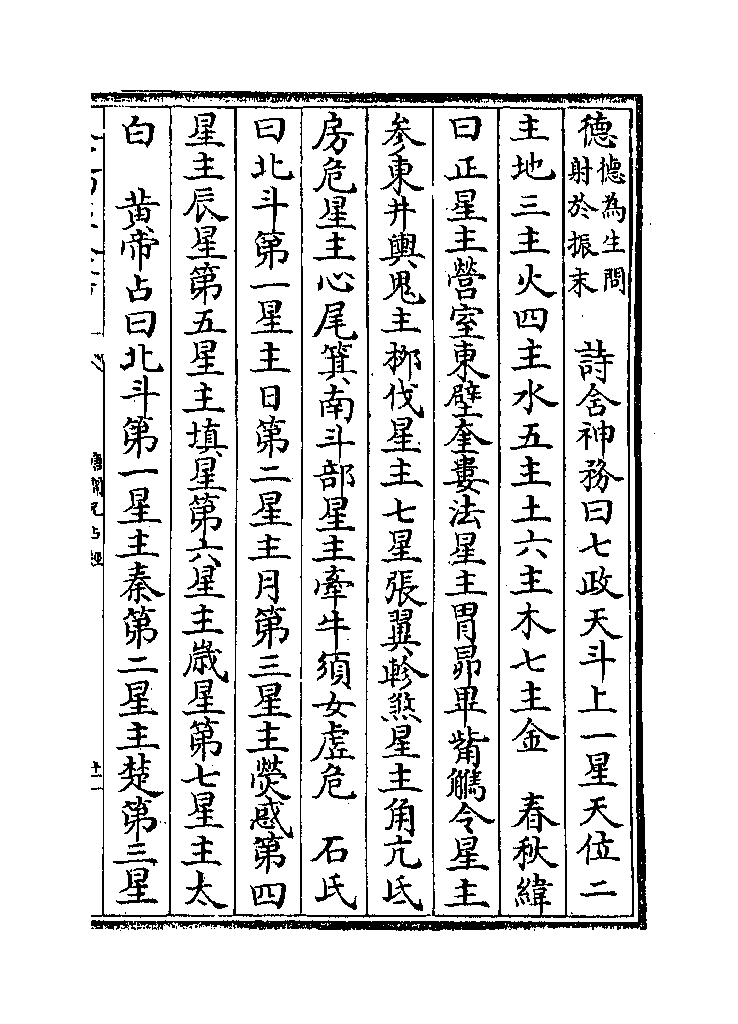 德德為生問射於振末　詩含神務曰七政天斗上一星天位二
主地三主火四主水五主土六主木七主金　春秋緯
曰正星主營室東壁奎婁法星主胃昴畢觜觿令星主
参東井輿鬼主栁伐星主七星張翼軫煞星主角亢氐
房危星主心尾箕南斗部星主牽牛須女虛危　石氏
曰北斗第一星主日第二星主月第三星主熒惑第四
星主辰星第五星主填星第六星主歲星第七星主太
白　黄帝占曰北斗第一星主秦第二星主楚第三星
唐開元占經